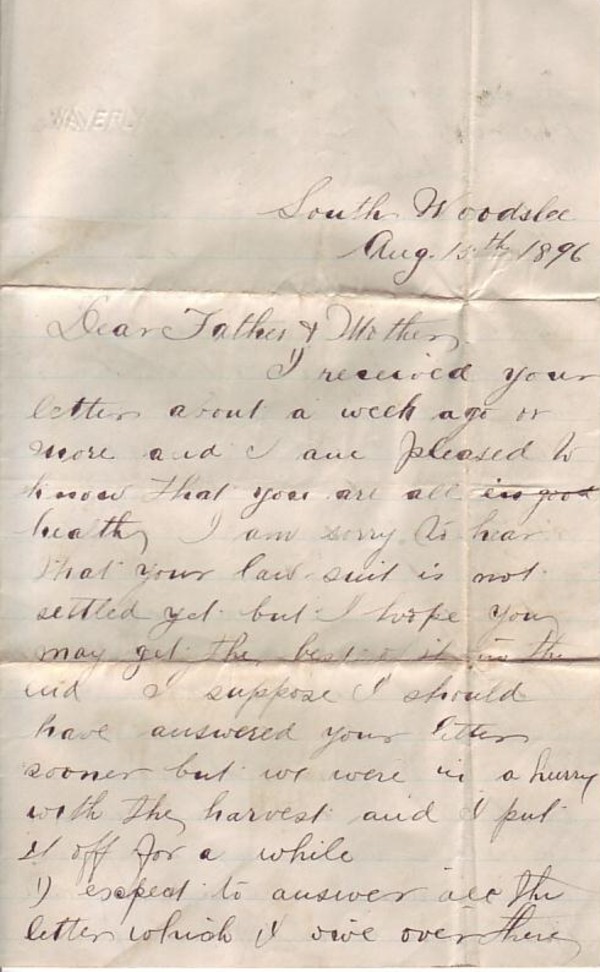 WAVERLY
South Woodslee
Aug. 15th 1896
Dear Father & Mother
I received your
letter about a week ago or
more and I am pleased to
know that you are all in good
healthy I am sorry to hear
that your law suit is not
settled yet but I hope you
may get the best of it in the
end I suppose I should
have answered your letter
sooner but we were in a hurry
with the harvest and I put
it off for a while
I expect to answer all the
letters which I owe over there